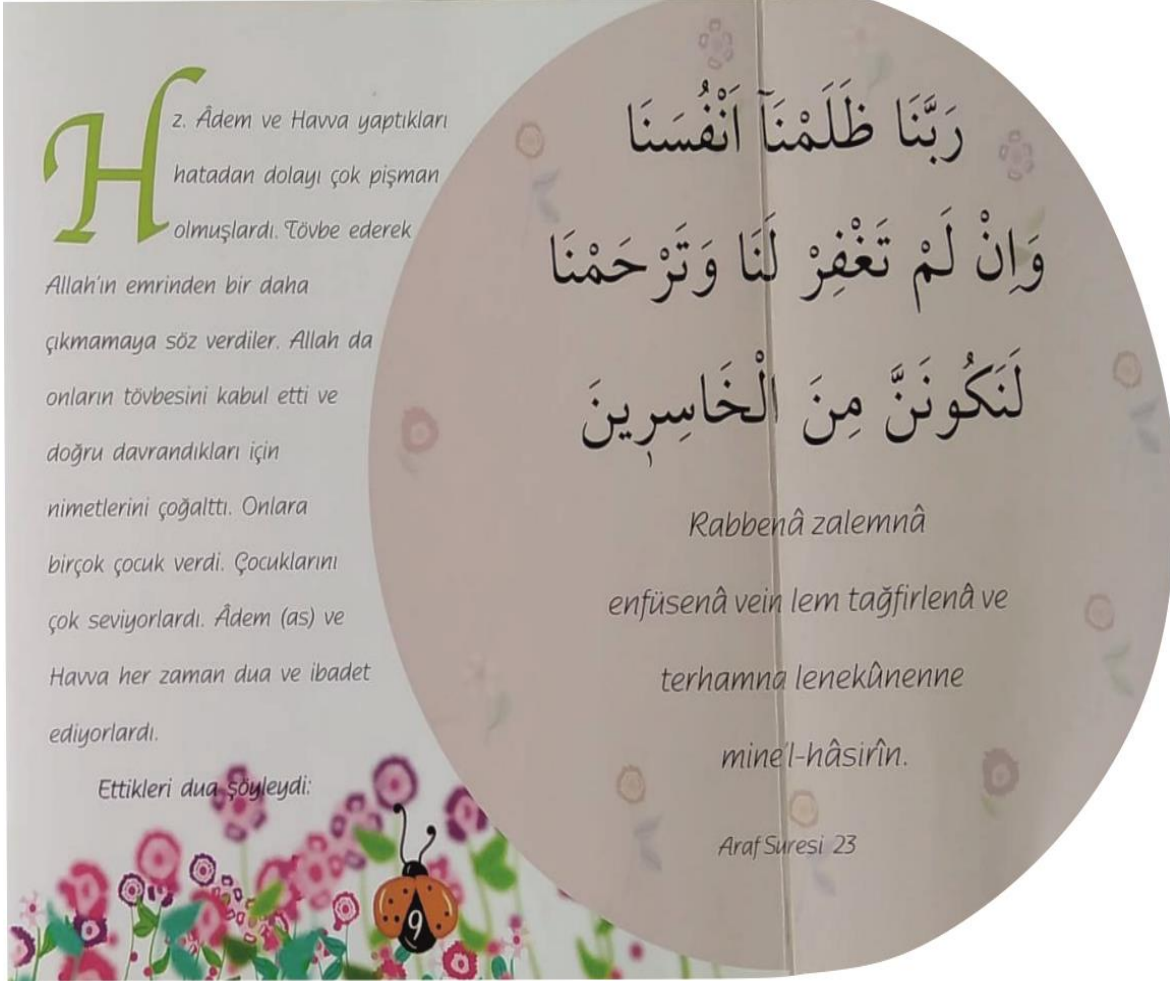 Hz. Âdem ve Havva yaptıkları
hatadan dolayı çok pişman
olmuşlardı. Tövbe ederek
Allah'ın emrinden bir daha
çıkmamaya söz verdiler. Allah da
onların tövbesini kabul etti ve
doğru davrandıkları için
nimetlerini çoğalttı. Onlara
birçok çocuk verdi. Çocuklarını
çok seviyorlardı. Âdem (as) ve
Havva her zaman dua ve ibadet
ediyorlardı.
Ettikleri dua şöyleydi:
9
رَبَّنَا ظَلَمْنَآ اَنْفُسَنَا
وَاِنْ لَمْ تَغْفِرْ لَنَا وَتَرْحَمْنَا
لَنَكُونَنَّ مِنَ الْخَاسِرٖينَ
Rabbenâ zalemnâ
enfüsenâ vein lem tağfirlenâ ve
terhamna lenekûnenne
mine'l-hâsirîn.
Araf Suresi 23